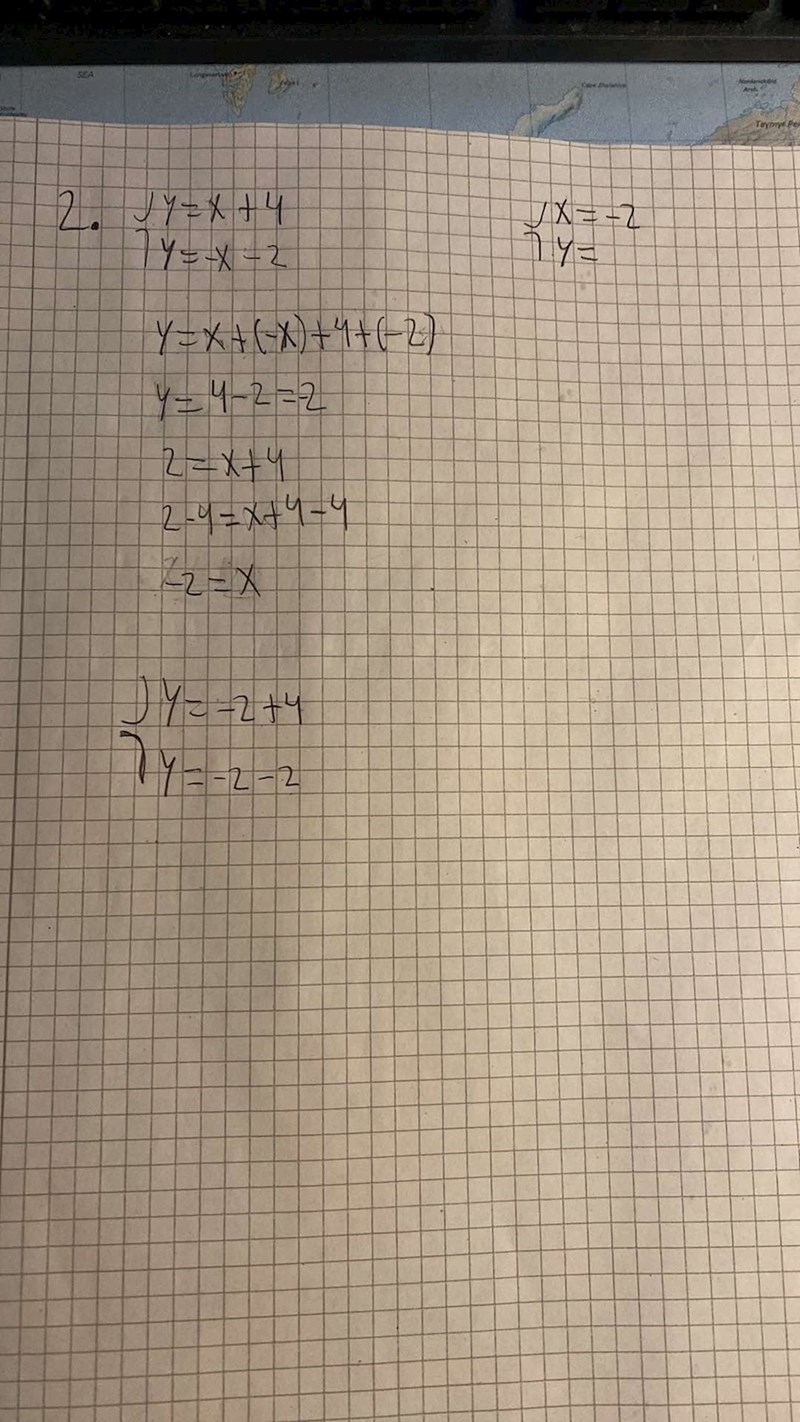 2. { y = x + 4
{ y = -x - 2
{ x = -2
{ y =
y = x + (-x) + 4 + (-2)
y = 4 - 2 = 2
2 = x + 4
2 - 4 = x + 4 - 4
-2 = x
{ y = -2 + 4
{ y = -2 - 2
SEA